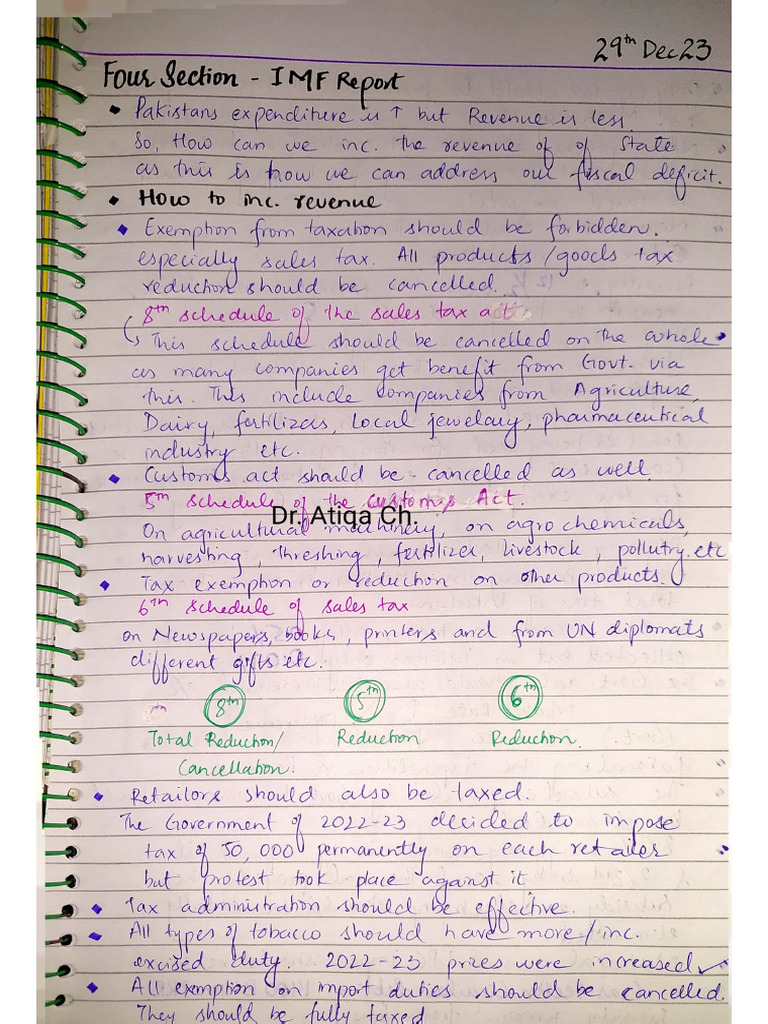 29th Dec 23
Four Section - IMF Report
• Pakistans expenditure is ↑ but Revenue is less
So, How can we inc. the revenue of of State
as this is how we can address our fiscal deficit.
• How to inc. revenue
◆ Exemption from taxation should be forbidden.
especially sales tax. All products/goods tax
reduction should be cancelled.
8th schedule of the sales tax act.
↳ This schedule should be cancelled on the whole
as many companies get benefit from Govt. via
this. This include companies from Agriculture,
Dairy, fertilizers, Local jewelary, pharmaceutical
industry etc.
◆ Customs act should be cancelled as well.
5th schedule of the customs Act.
Dr. Atiqa Ch.
On agricultural machinery, on agro chemicals,
harvesting, Threshing, fertilizer, livestock, pollutry etc
◆ Tax exemption or reduction on other products.
6th schedule of sales tax
on Newspapers, books, printers and from UN diplomats
different gifts etc.
8th 8th 5th 6th
Total Reduction/ Reduction Reduction.
Cancellation.
◆ Retailors should also be taxed.
The Government of 2022-23 decided to impose
tax of 50,000 permanently on each retailer
but protest took place against it
◆ Tax administration should be effective.
◆ All types of tobacco should have more/inc.
excised duty. 2022-23 prizes were increased ✓
◆ All exemption on import duties should be cancelled.
They should be fully taxed